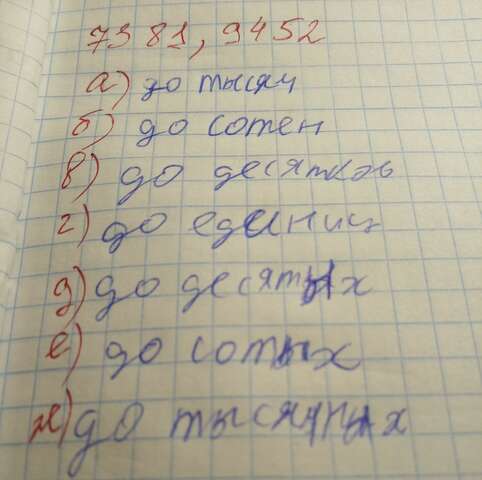 7381,9452
а) до тысяч
б) до сотен
в) до десятков
г) до единиц
д) до десятых
е) до сотых
ж) до тысячных